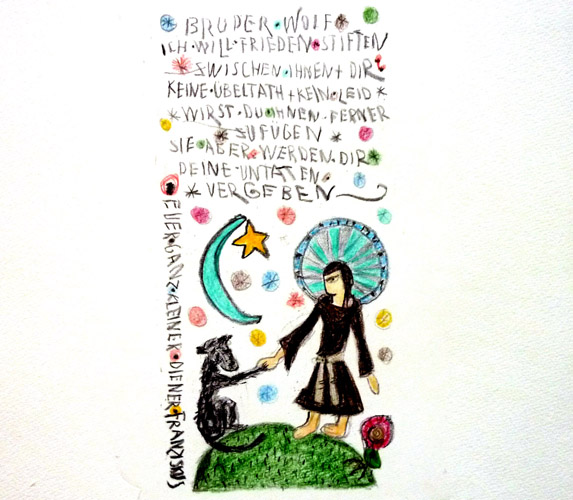 BRUDER·WOLF
ICH·WILL·FRIEDEN·STIFTEN
ZWISCHEN·IHNEN+DIR
KEINE·ÜBELTATH+KEIN·LEID *
* WIRST·DU·IHNEN·FERNER
* ZUFÜGEN *
SIE·ABER·WERDEN·DIR
DEINE·UNTATEN·
* VERGEBEN
EUER·GANZ·KLEINER·DIENER·FRANZISKUS